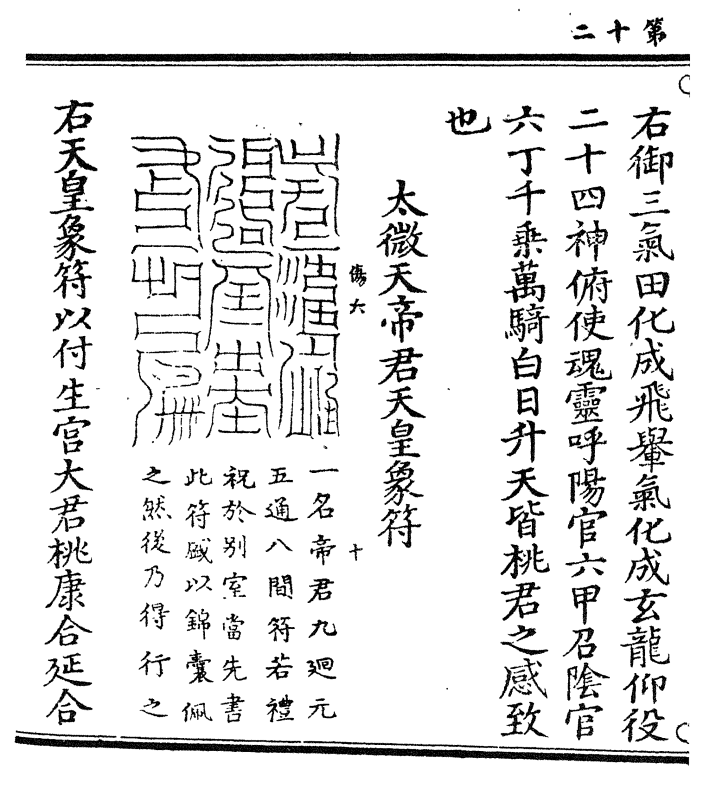 第十二
右御三氣田化成飛轝氣化成玄龍仰役
二十四神俯使魂靈呼陽官六甲召陰官
六丁千乗萬騎白日升天皆桃君之感致
也
太微天帝君天皇象符
傷六
十
一名帝君九廻元
五通八間符若禮
祝於別室當先書
此符盛以錦囊佩
之然後乃得行之
右天皇象符以付生宫大君桃康合延合